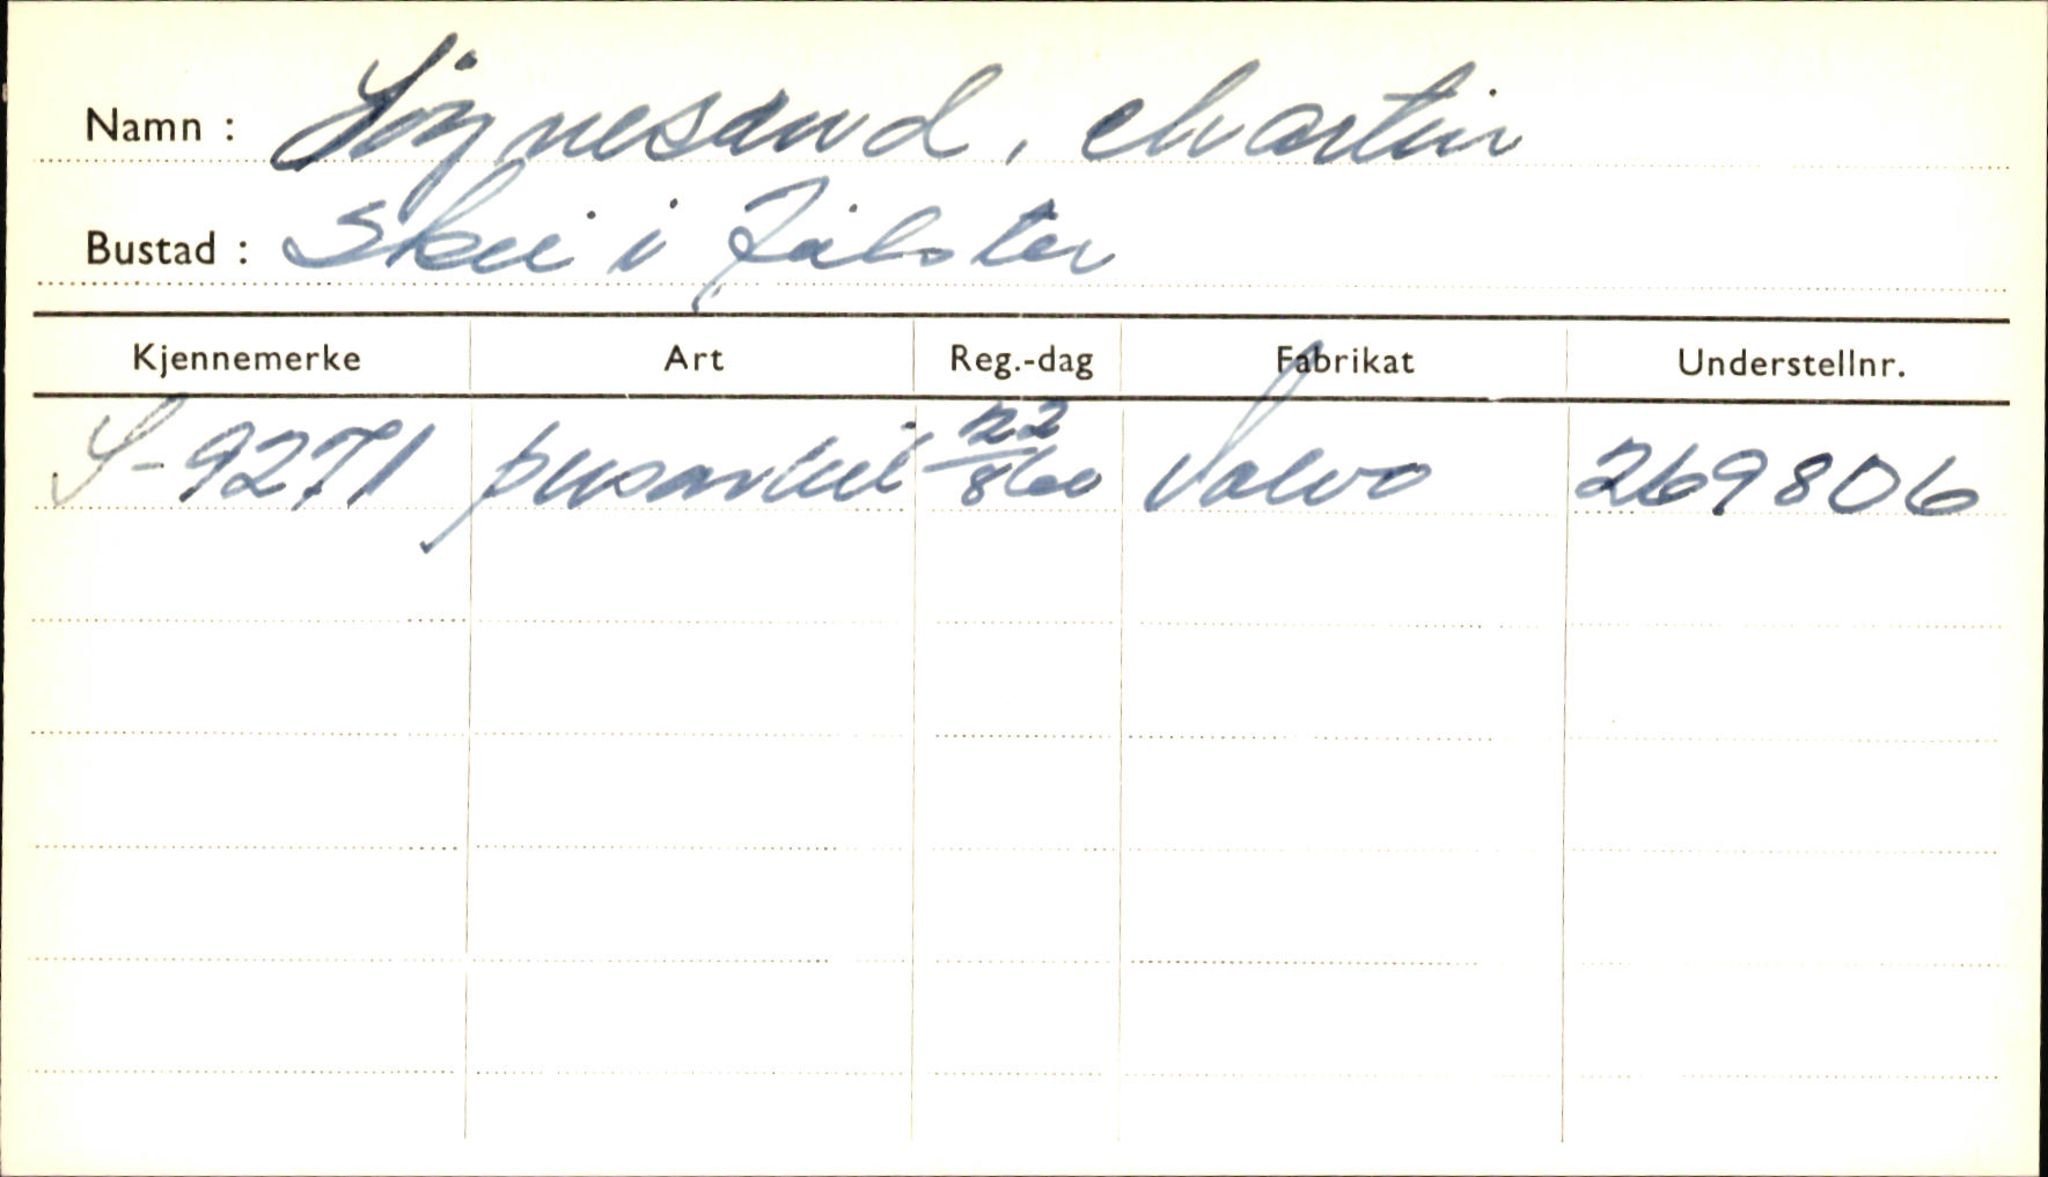 Namn : Søgnesand, Martin
Bustad : Skei i Jølster
Kjennemerke Art Reg.-dag Fabrikat Understellnr.
S-9271 personbil 22/8 60 Volvo 269806